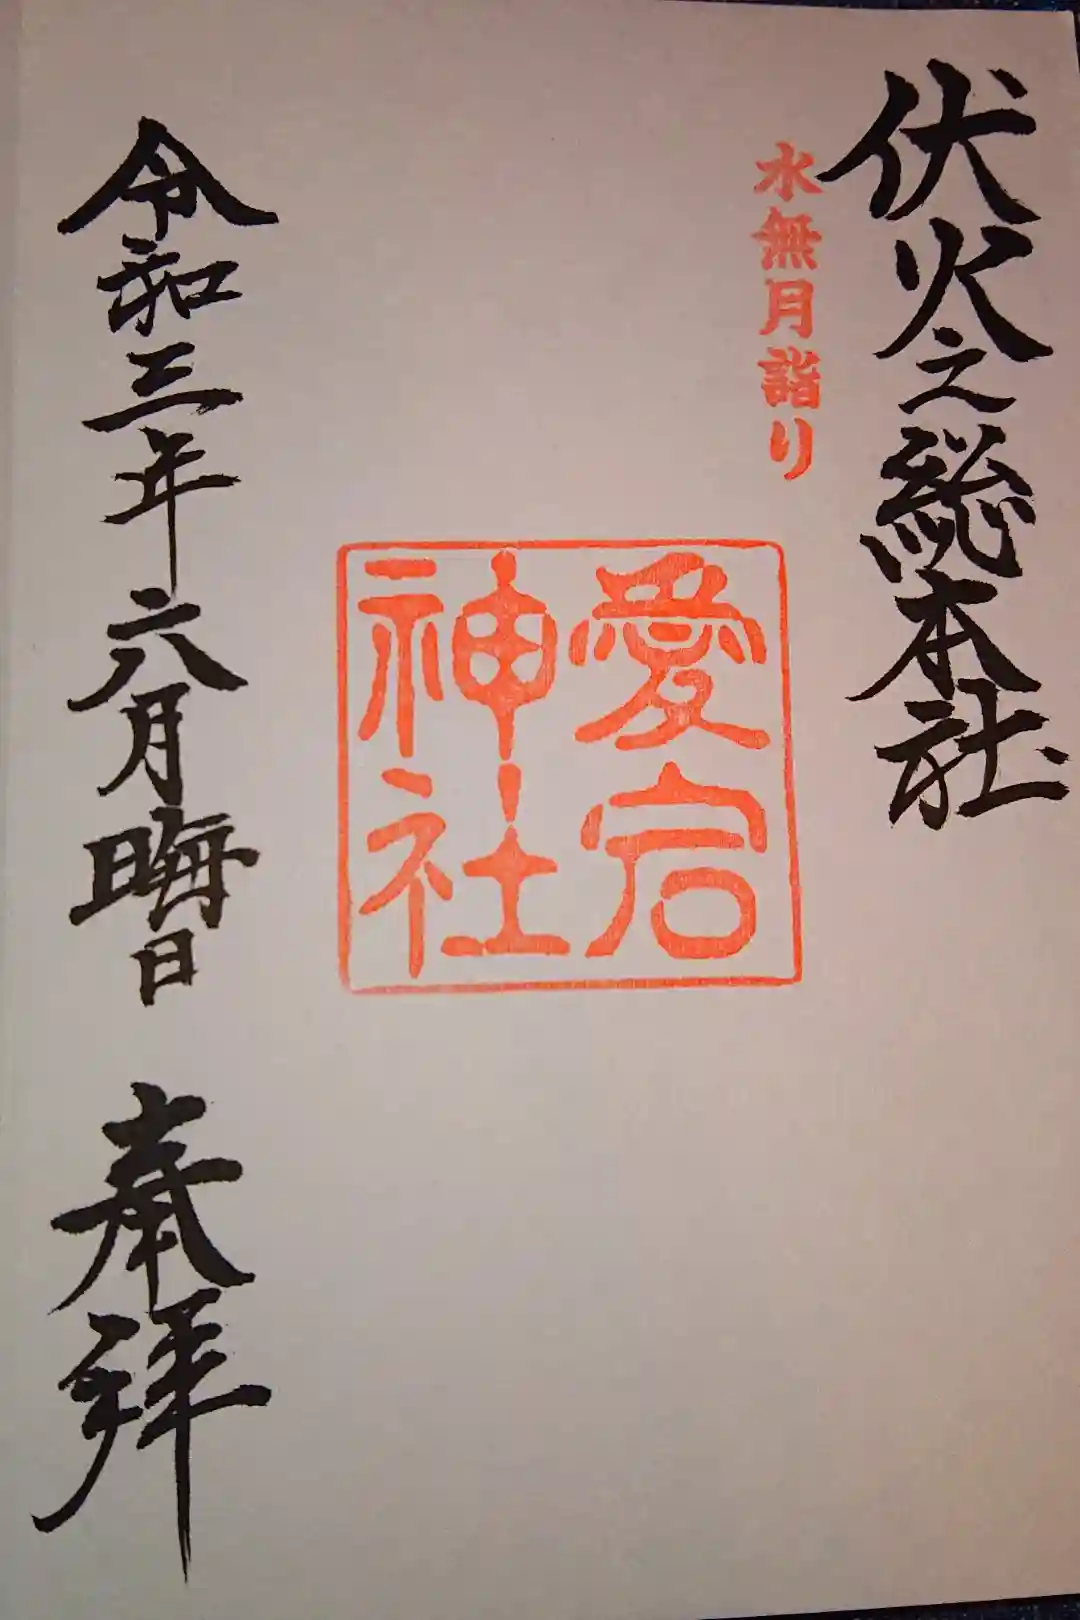 伏火之総本社
水無月詣り
愛宕
神社
令和三年六月晦日 奉拝